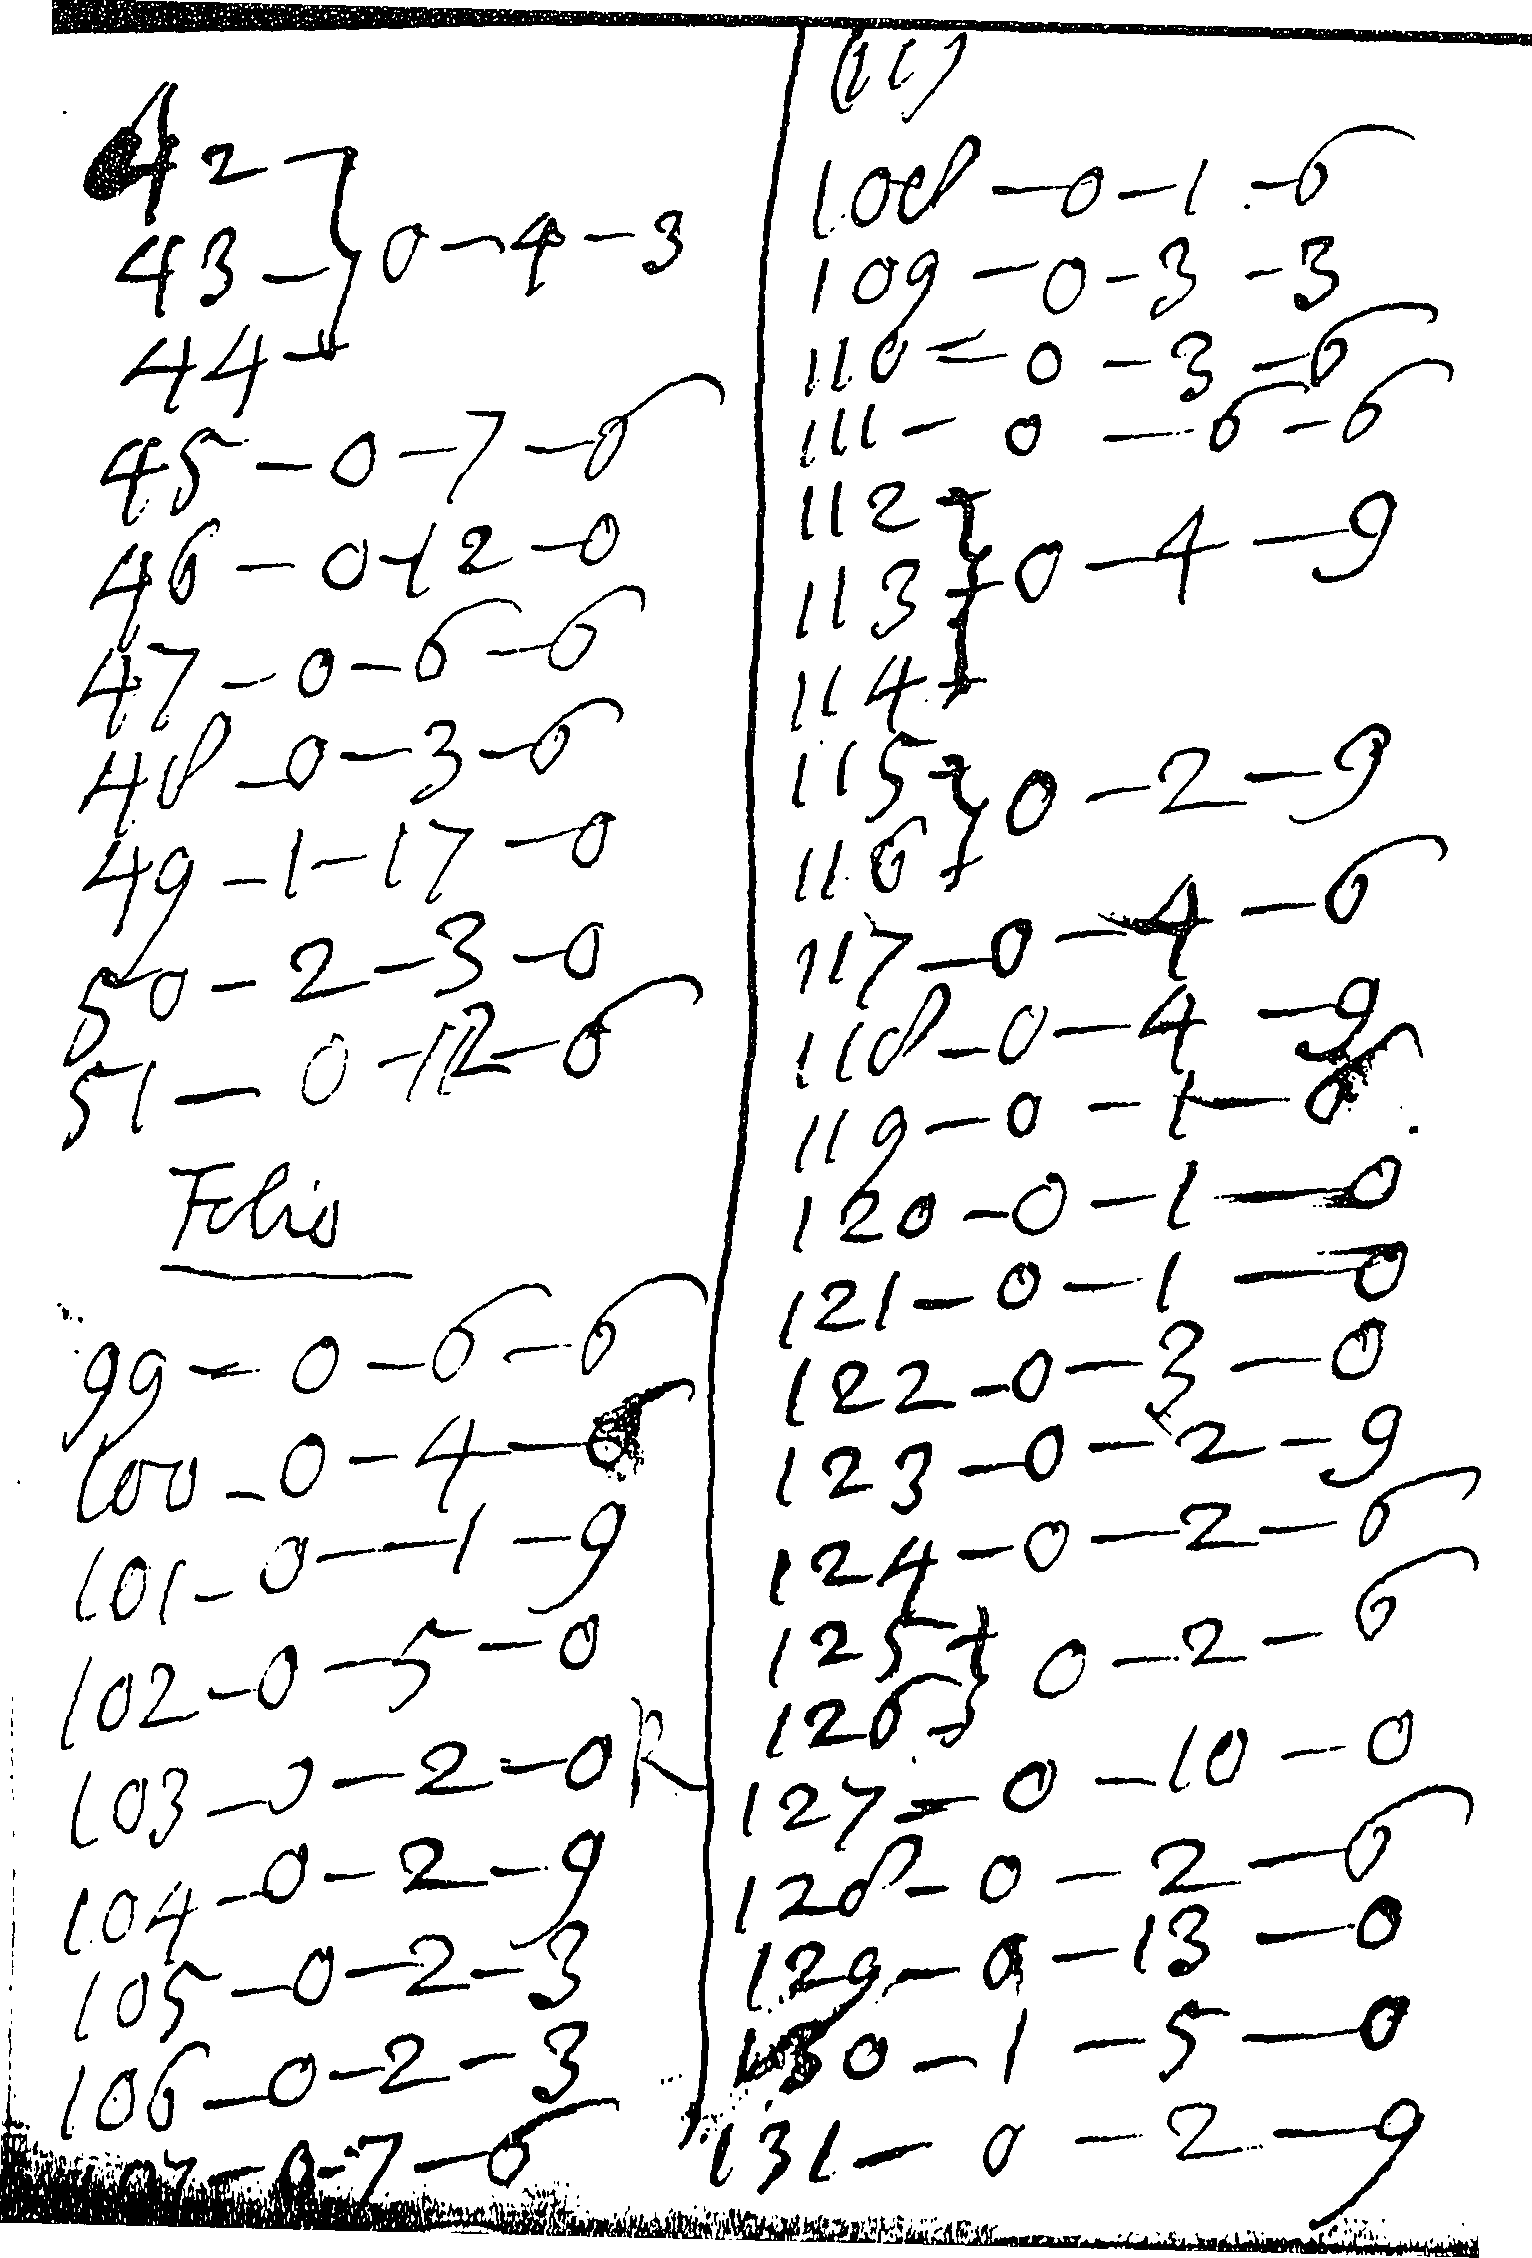 42 -
43 - } 0 - 4 - 3
44 -
45 - 0 - 7 - 6
46 - 0 - 12 - 0
47 - 0 - 6 - 6
48 - 0 - 3 - 6
49 - 1 - 17 - 0
50 - 2 - 3 - 0
51 - 0 - 12 - 6
Folio
99 - 0 - 6 - 6
100 - 0 - 4 - 6
101 - 0 - - 1 - 9
102 - 0 - 5 - 0
103 - 0 - 2 - 0 R
104 - 0 - 2 - 9
105 - 0 - 2 - 3
106 - 0 - 2 - 3
107 - 0 - 7 - 6
108 - 0 - 1 - 6
109 - 0 - 3 - 3
110 = 0 - 3 - 6
111 - 0 - 6 - 6
112 -
113 - } 0 - 4 - 9
114 -
115 - } 0 - 2 - 9
116 -
117 - 0 - 4 - 6
118 - 0 - 4 - 9
119 - 0 - 1 - 6
120 - 0 - 1 - 0
121 - 0 - 1 - 0
122 - 0 - 3 - 0
123 - 0 - 2 - 9
124 - 0 - 2 - 6
125 - } 0 - 2 - 6
126 -
127 = 0 - 10 - 0
128 - 0 - 2 - 6
129 - 0 - 13 - 0
130 - 1 - 5 - 0
131 - 0 - 2 - 9